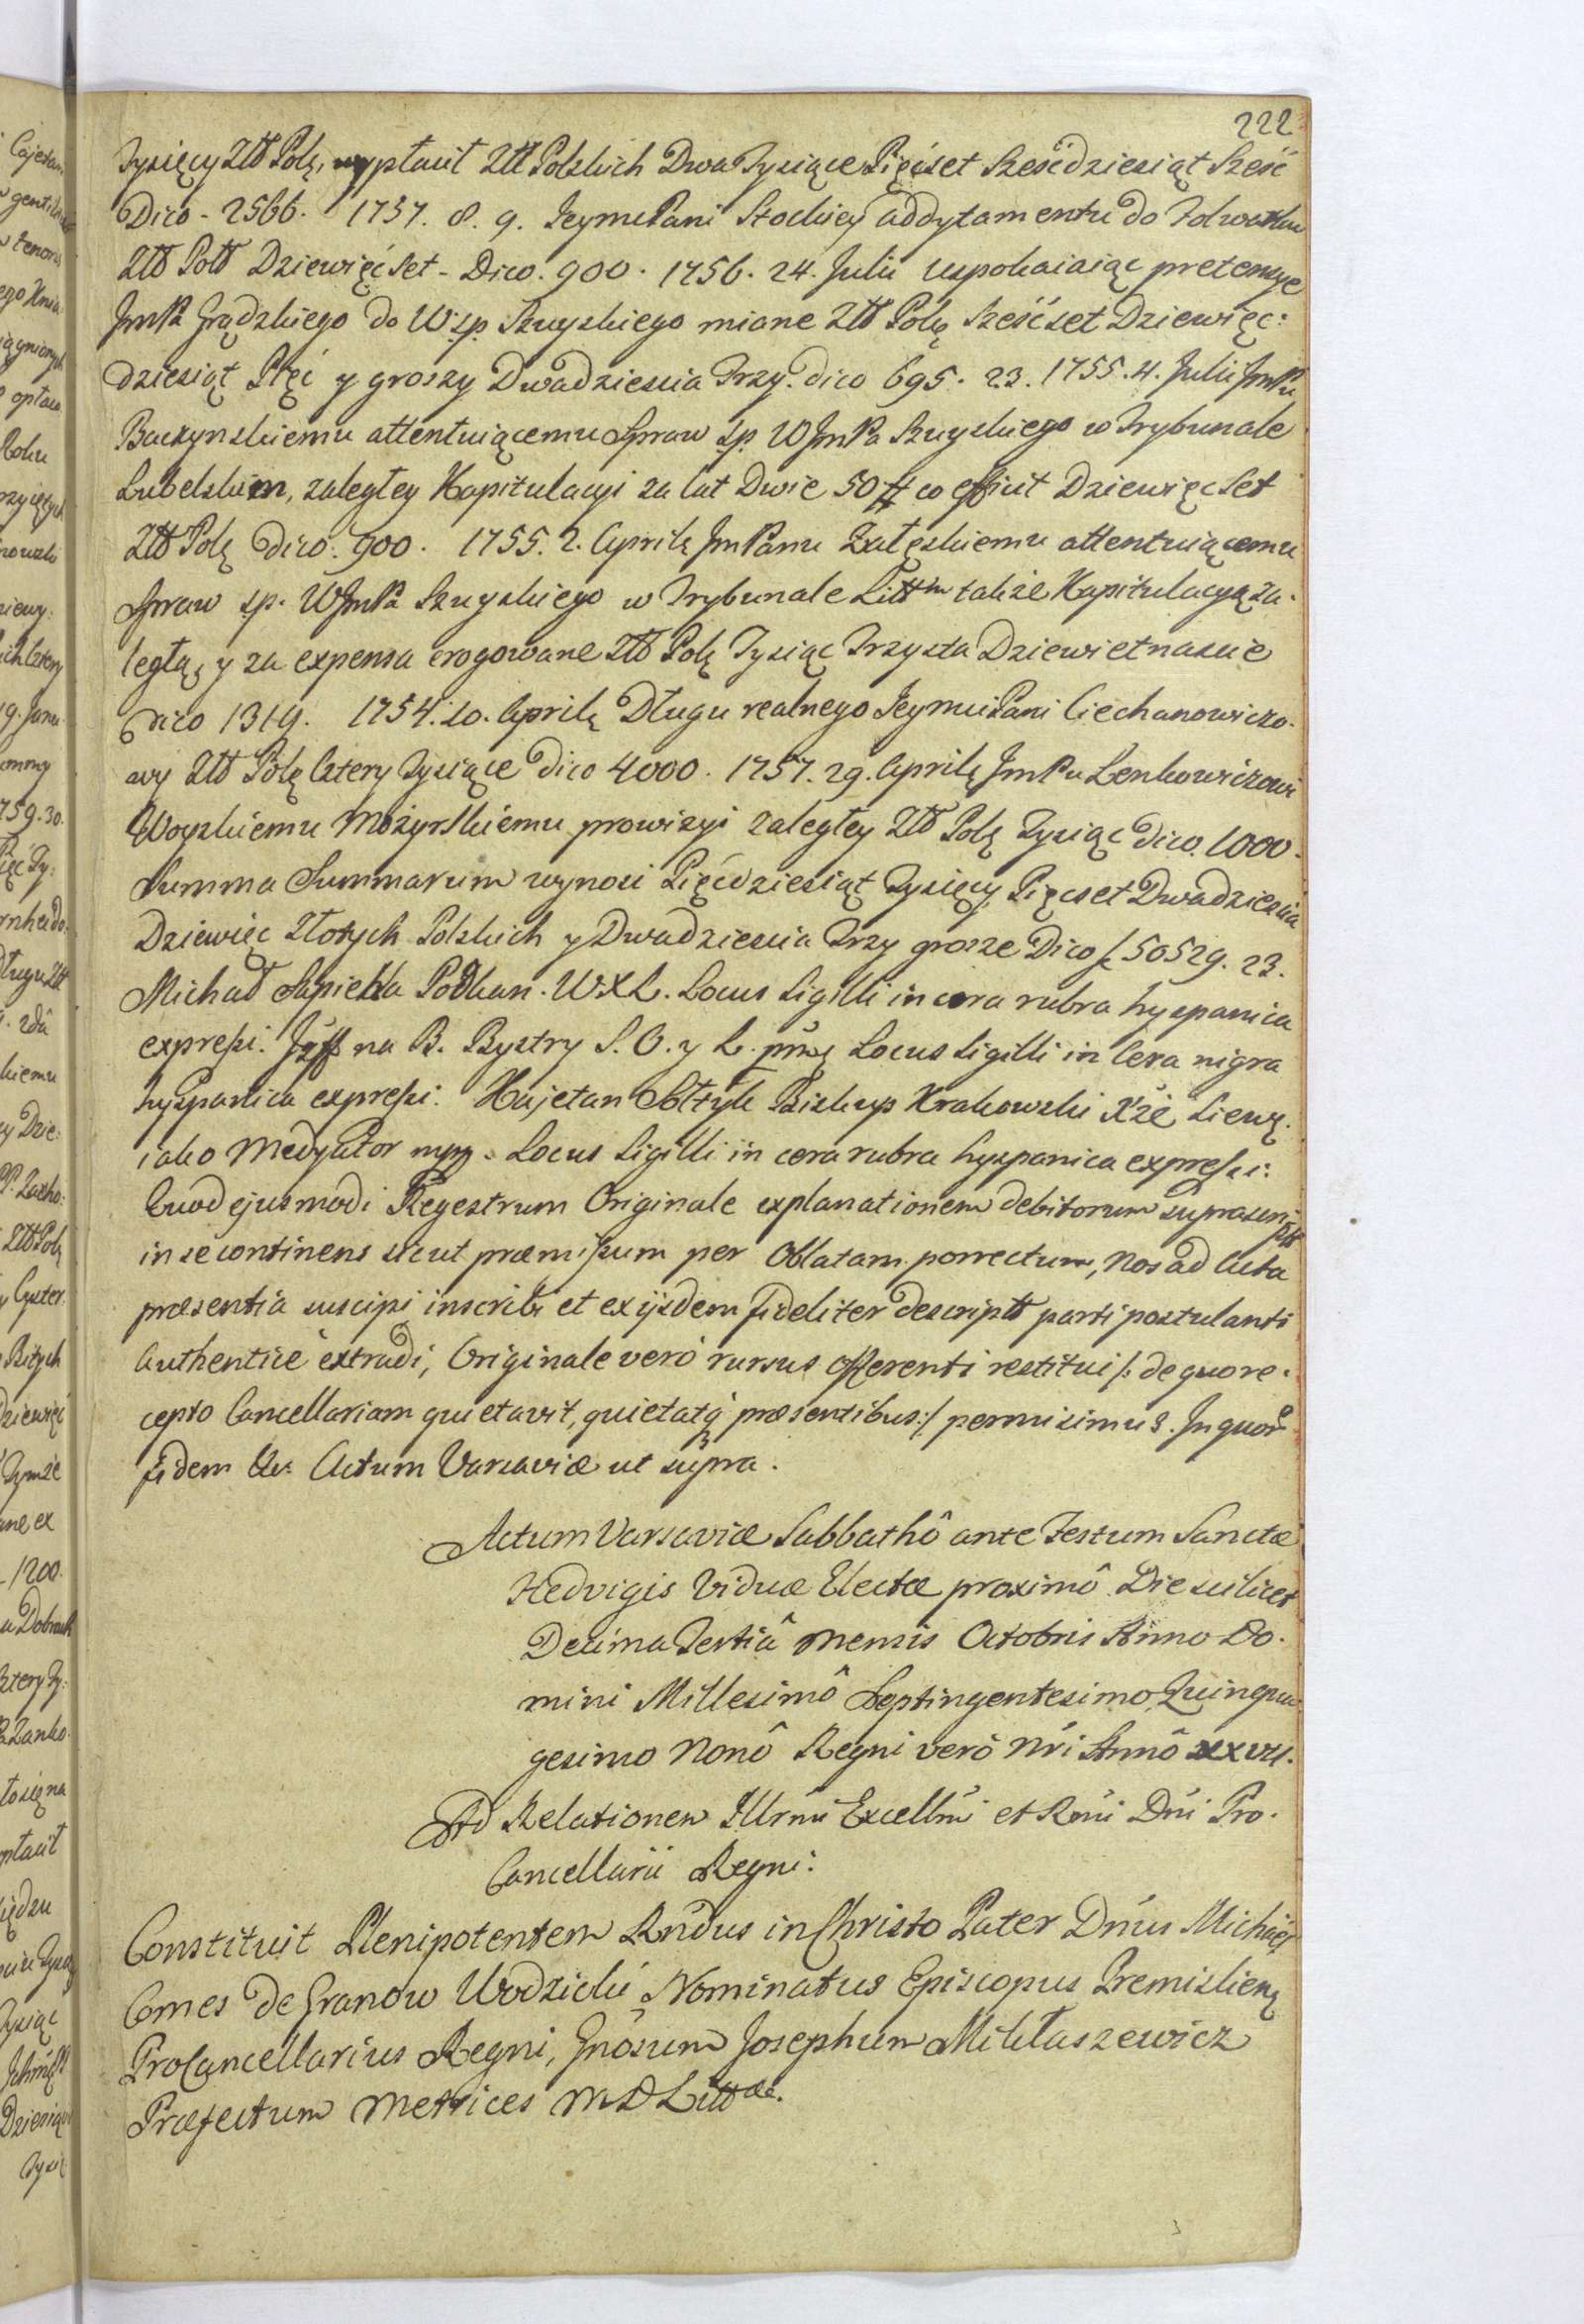 222
Tysięcy Złł Polę, wypłacił Złł Polskich Dwa Tysiące Pięćset Sześćdziesiąt Sześć
Dico - 2566. 1757. 8. 9. Jeymć Pani Stockiey addytamentu do Folwarku
Złł Poll Dziewięćset - Dico. 900. 1756. 24. Julii uspokaiaiąc pretensye
JmPa Grądzkiego do W. sp. Szuyskiego miane Złł Polę Sześćset Dziewięć:
dziesiąt Pięć y groszy Dwadzieścia Trzy. dico 695. 23. 1755. 4. Julii JmPu
Baczynskiemu attentuiącemu Spraw sp. WJmPa Szuyskiego w Trybunale
Lubelskim, zaległey Kapitulacyi za lat Dwie 50 # co efficit Dziewięćset
Złł Polę dico. 900. 1755. 2. Aprilę JmPanu Załęskiemu attentuiącemu
Spraw sp. WJmPa Szuyskiego w Trybunale Litt̃m także Kapitulacyą za-
ległą, y za expensa erogowane Złł Polę Tysiąc Trzysta Dziewietnascie
Dico 1319. 1754. 20. Aprilę Długu realnego Jeymci Pani Ciechanowiczo-
wy Złł Polę Cztery Tysiące dico 4000. 1757. 29. Aprilę JmPu Lenkowiczowi
Woyskiemu Mozyrskiemu prowizyi zaległey Złł Polę Tysiąc dico. 1000.
Summa Summarum wynosi Pięćdziesiąt Tysięcy Pięcset Dwadziescia
Dziewięc Złotych Polskich y Dwadziescia Trzy grosze Dico f. 50529. 23.
Michał Sapieha Podkan. WXL. Locus Sigilli in cera rubra hyspanica
expressi. Jzff na B. Bystry S. O. y L. pńwę Locus Sigilli in Cera nigra
hyspanica expressi. Kajetan Sołtyk Biskup Krakowski Xże Siewę.
iako Medyator mpp. Locus Sigilli in cera rubra hyspanica expressi:
Quod ejusmodi Regestrum Originale explanationem debitorum suprascri-
ptt
in se continens sicut præmissum per Oblatam porrectum, Nos ad Acta
præsentia suscipi inscribi et ex ijsdem fideliter descriptt parti postulanti
Authenticè extradi, Originale verò rursus offerenti restitui /: de quo re-
cepto Cancellariam quietavit, quietatq præsentibus :/ permisimus. In quor̃
fidem &c. Actum Varsaviæ ut supra.
Actum Varsaviæ Sabbathô ante Festum Sanctæ
Hedvigis Viduæ Electæ proximô Die scilicet
Decima Tertiâ Mensis Octobris Anno Do-
mini Millesimô Septingentesimo Quinqua
gesimo Nonô Regni verò Nri Annô XXVII.
Ad Relationem Illrmi Excellmi et Rmi Dni Pro-
Cancellarii Regni:
Constituit Plenipotentem Rndus in Christo Pater Dnus Michäel
Comes de Granow Wodzicki Nominatus Episcopus Premislienę
ProCancellarius Regni, Gnosum Josephum Mikłaszewicz
Præfectum Metrices MDLittæ.